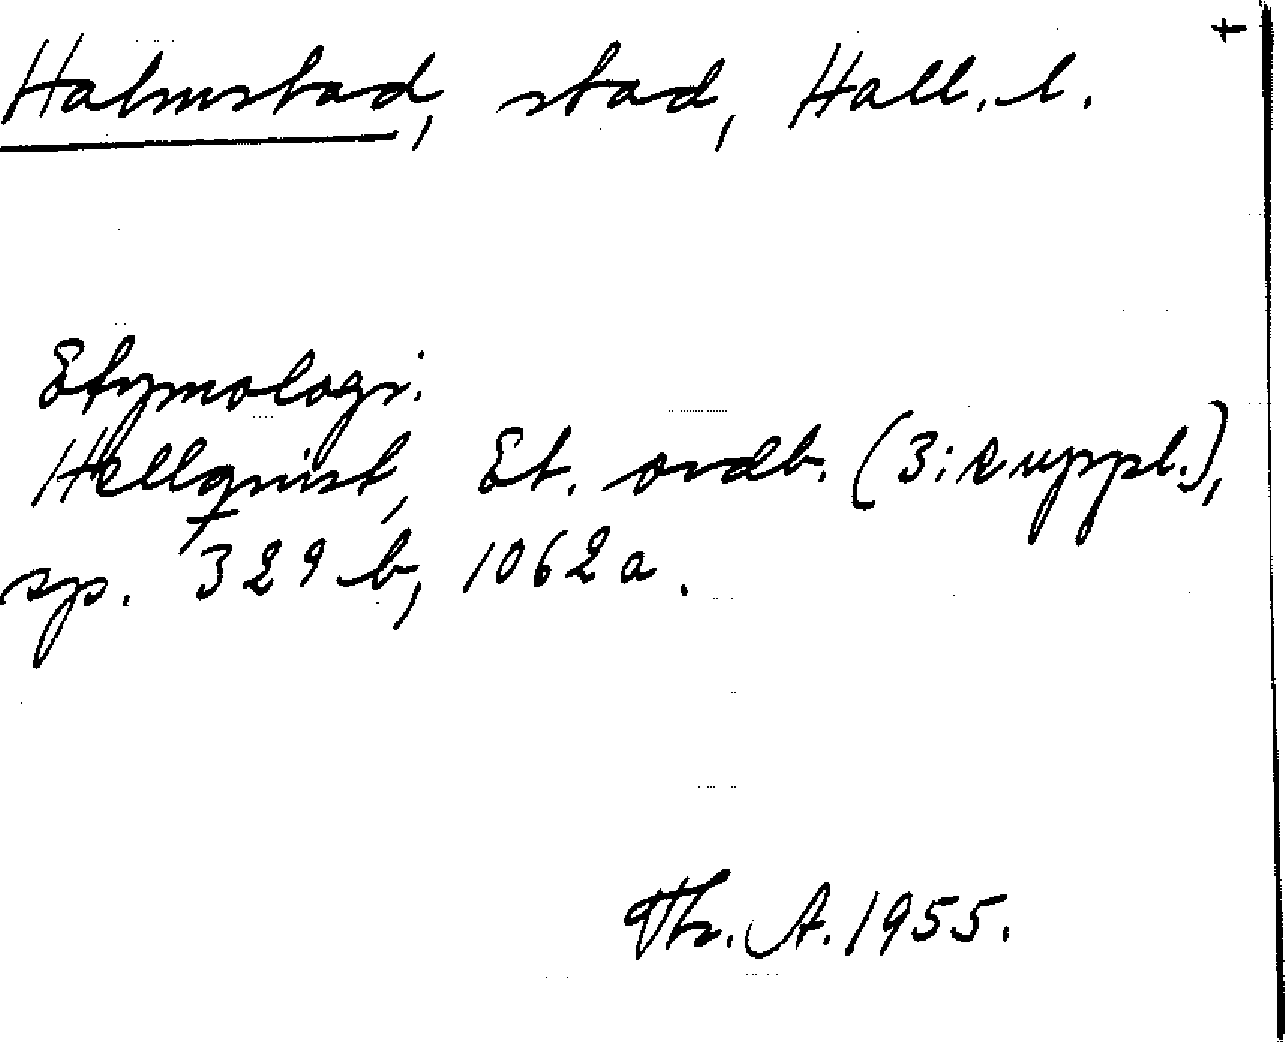 Halmstad, stad, Hall. l.
Etymologi:
Hellquist, Et. ordb. (3:e uppl.),
sp. 329 b, 1062 a.
Th. A. 1955.